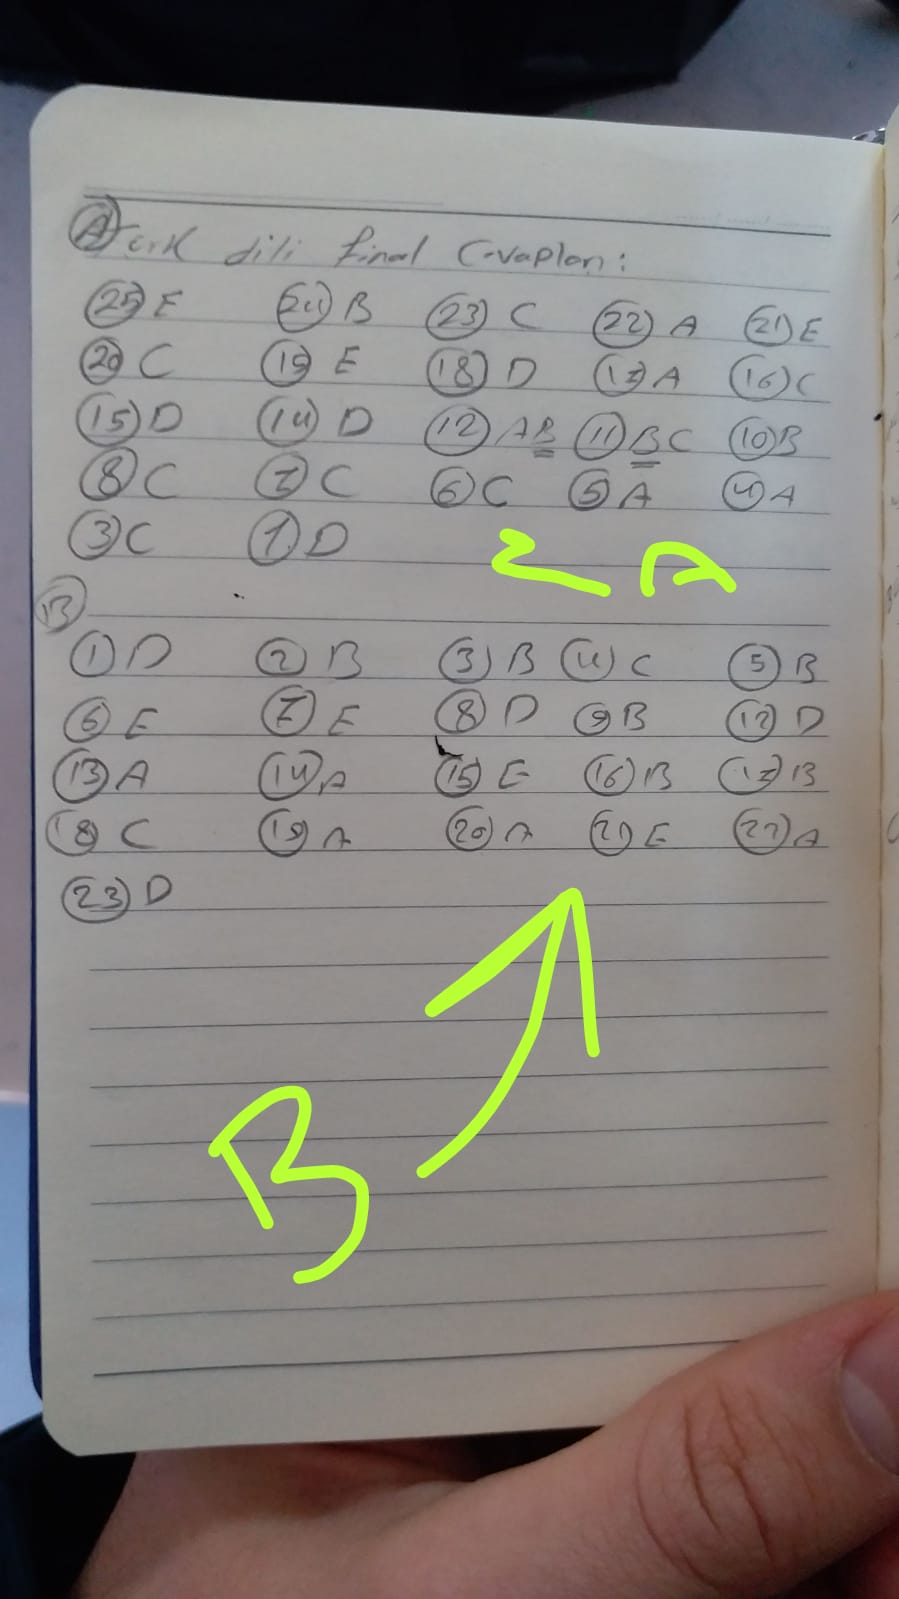 A Türk dili final Cevapları:
25 E 24 B 23 C 22 A 21 E
20 C 19 E 18 D 17 A 16 C
15 D 14 D 12 AB 11 BC 10 B
8 C 7 C 6 C 5 A 4 A
3 C 1 D
2 A
B
1 D 2 B 3 B 4 C 5 B
6 E 7 E 8 D 9 B 12 D
13 A 14 A 15 E 16 B 17 B
18 C 19 A 20 A 21 E 22 A
23 D
B